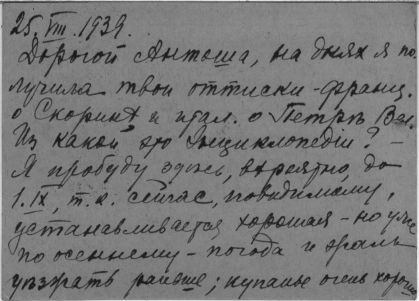 25. VIII. 1939.
Дорогой Антоша, на днях я по-
лучила твои оттиски - франц.
о Скорине и итал. о Петре Вел.
Из какой это Энциклопедіи? -
Я пробуду здесь, вероятно, до
1. IX, т. к. сейчас, повидимому,
устанавливается хорошая - но уже
по осеннему - погода и жаль
уезжать раньше; купанье очень хорошо